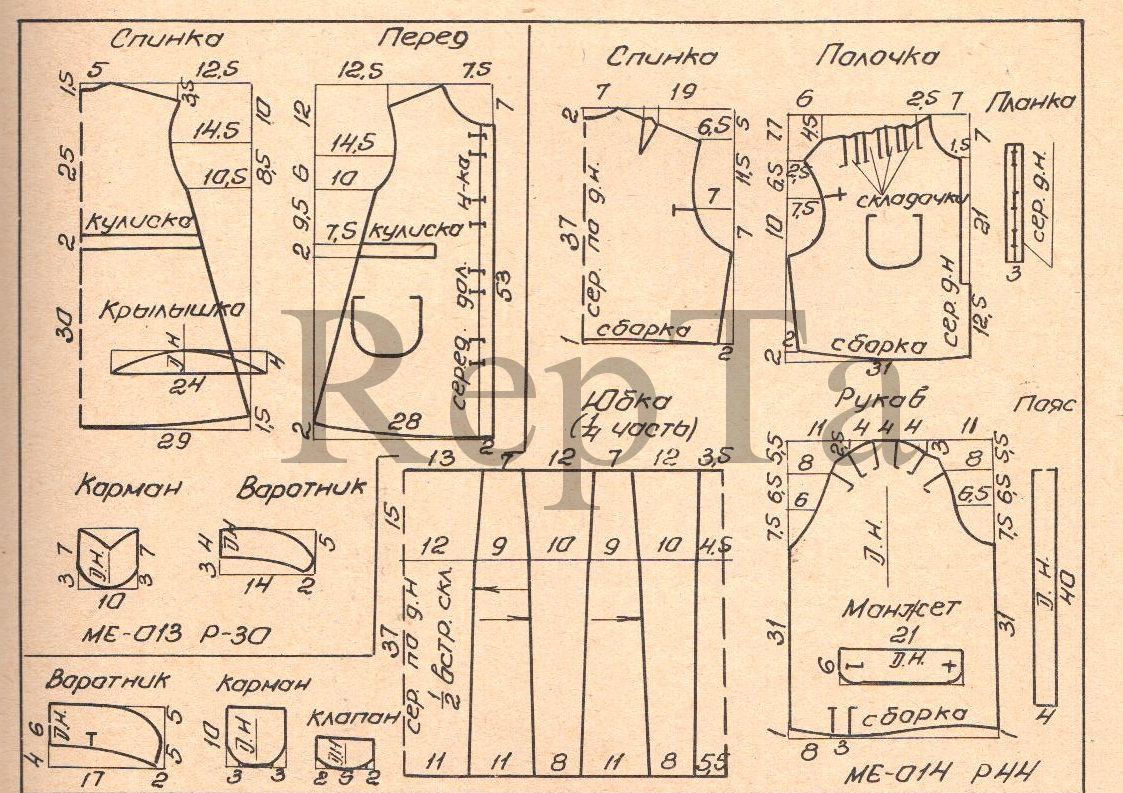 Спинка
5
12,5
1,5
3,5
10
14,5
25
8,5
10,5
кулиска
2
30
Крылышка
Д.Н
4
24
29
1,5
Перед
12,5
7,5
12
7
14,5
6
10
н-ка
9,5
7,5
кулиска
2
53
серед. дол.
28
2
2
Карман
7
7
Д.Н.
3
3
10
Воротник
4
Д.Н
5
3
14
2
МЕ-013 Р-30
Спинка
7
19
2
6,5
5
11,5
7
37
сер. по д.н.
7
сборка
1
2
Полочка
6
2,5
7
4,5
7
1,5
2,5
6,5
складочки
7,5
10
21
сер. д.н
12,5
2
сборка
2
31
Планка
сер. д.н.
3
Юбка
(1/4 часть)
13
7
12
7
12
3,5
15
12
9
10
9
10
4,5
37
сер. по д.н
1/2 встр. скл.
11
11
8
11
8
5,5
Рукав
11
2,5
4
4
4
3
11
5,5
8
8
5,5
6,5
6
6,5
6,5
7,5
7,5
Д.Н.
Манжет
21
6
Д.Н.
31
31
сборка
1
8
3
1
Пояс
Д.Н.
40
4
Воротник
6
Д.Н.
5
4
5
17
2
карман
10
Д.Н
3
3
клапан
Д.Н
2
2
МЕ-014 Р44
RepTa